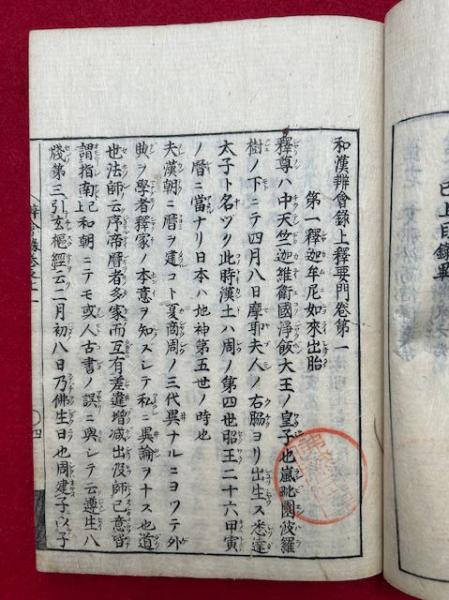 和漢辨會録上釋要門卷第一
第一釋迦牟尼如來出胎
釋尊ハ中天竺迦維衛國淨飯大王ノ皇子也嵐毗園波羅
樹ノ下ニテ四月八日摩耶夫人ノ右脇ヨリ出生ス悉達
太子ト名ツク此時漢土ハ周ノ第四世昭王二十六甲寅
ノ暦ニ當ナリ日本ハ地神第五世ノ時也
夫漢朝ニ暦ヲ建コト夏商周ノ三代異ナルニヨツテ外
典ヲ學者釋家ノ本意ヲ知スシテ私ニ異論ヲナス也道
世法師云序帝暦者多家而互有差違増減出没師己意皆
謂指南上記和朝ニテモ或人古書ノ誤ニ與シテ云遵生八
牋第三引玄樞經云二月初八日乃佛生日也周建子以子
四
已上目録畢